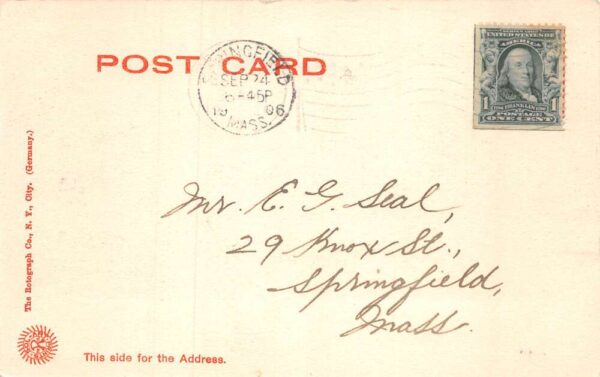 POST CARD
SPRINGFIELD
SEP 24
6-45P
1906
MASS.
SERIES 1902
UNITED STATES OF AMERICA
1 1
FRANKLIN
POSTAGE
ONE CENT
Mr. E. G. Seal,
29 Knox St.,
Springfield,
Mass.
The Rotograph Co., N. Y., City. (Germany.)
This side for the Address.